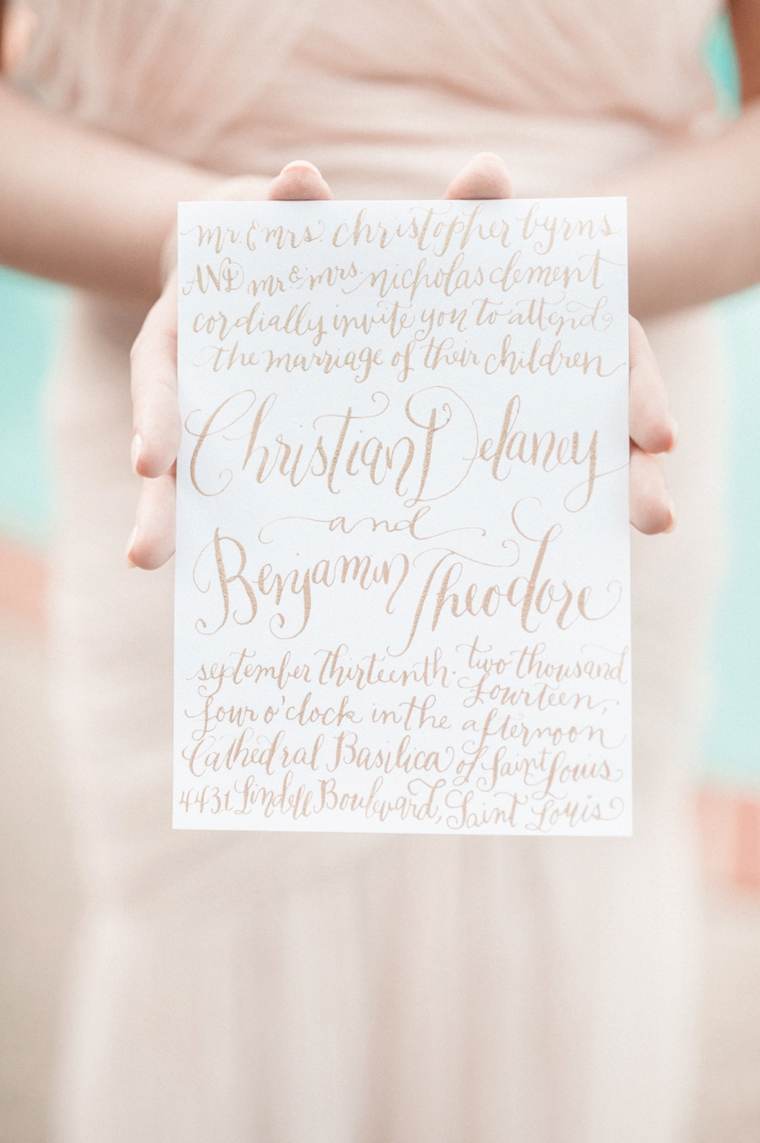 mr. & mrs. christopher byrns
AND mr & mrs. nicholas clement
cordially invite you to attend
the marriage of their children
Christian Delaney
and
Benjamin Theodore
september thirteenth. two thousand
fourteen,
four o'clock in the afternoon
Cathedral Basilica of Saint Louis
4431 Lindell Boulevard, Saint Louis